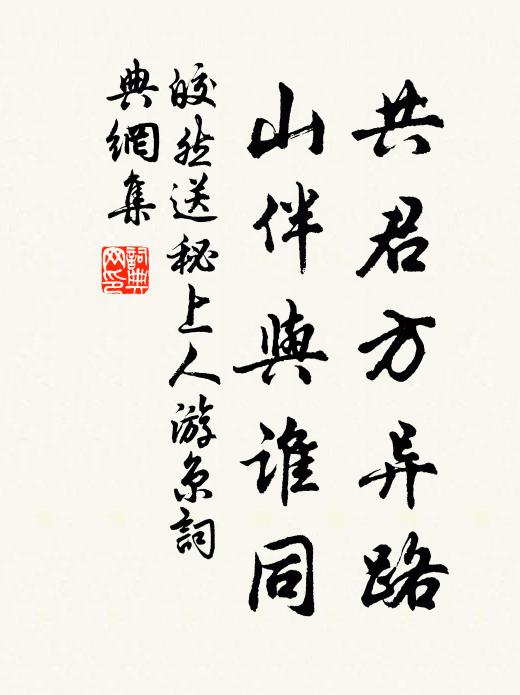 共君方异路
山伴與誰同
皎然送秘上人游京詞
典網集
詞典
网印